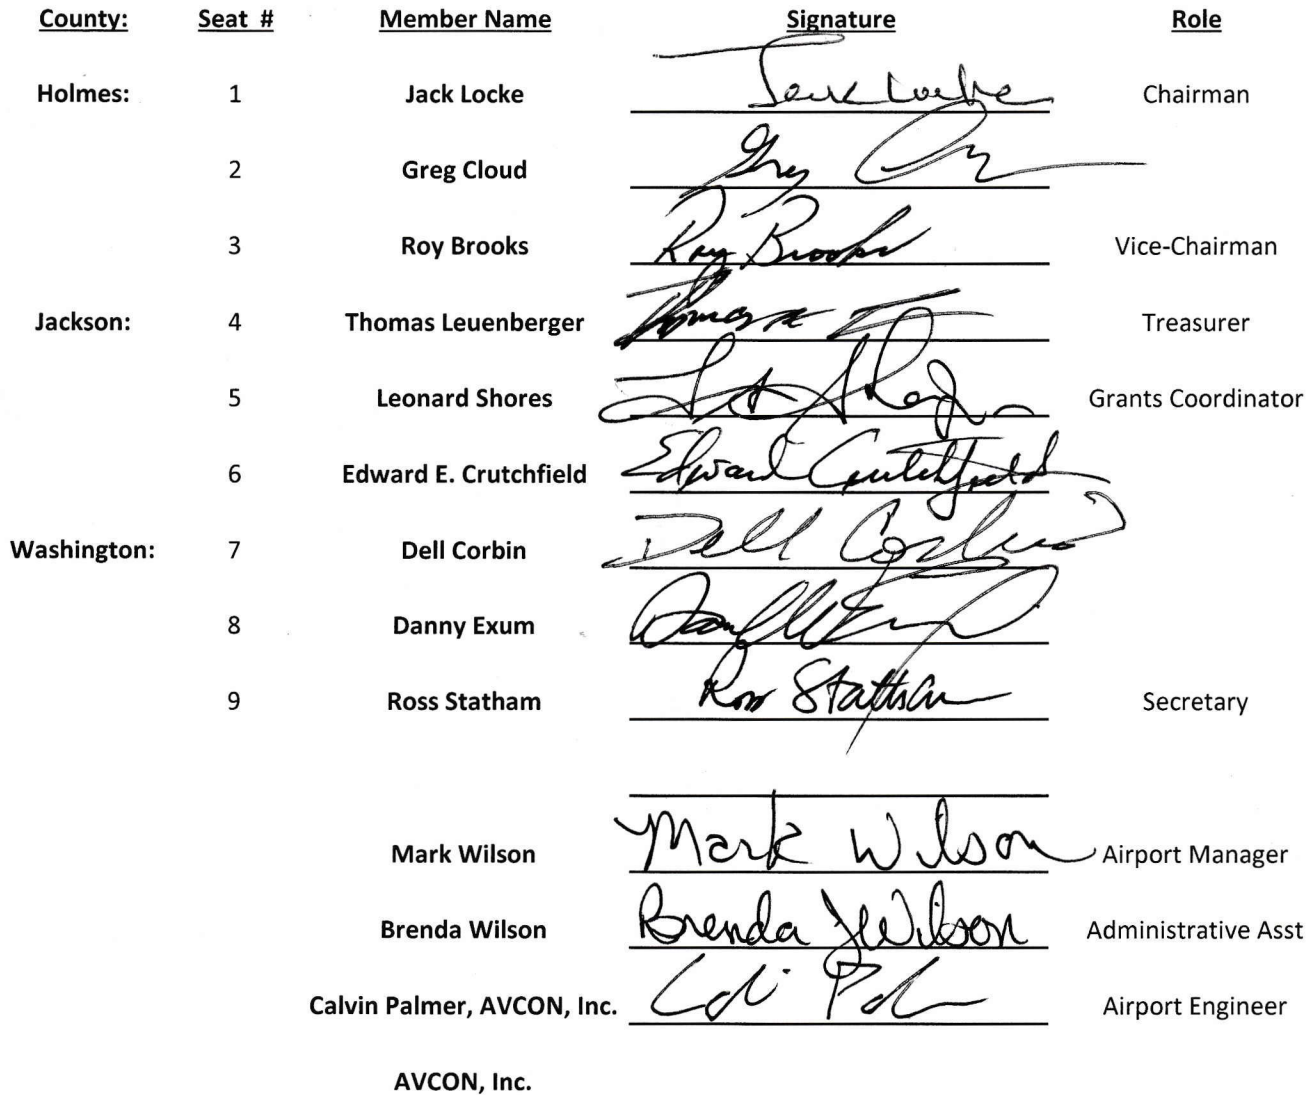 County: Seat # Member Name Signature Role
Holmes: 1 Jack Locke Jack Locke Chairman
2 Greg Cloud Greg
3 Roy Brooks Roy Brooks Vice-Chairman
Jackson: 4 Thomas Leuenberger Thomas Treasurer
5 Leonard Shores Grants Coordinator
6 Edward E. Crutchfield Edward Crutchfield
Washington: 7 Dell Corbin Dell Corbin
8 Danny Exum
9 Ross Statham Ross Statham Secretary
Mark Wilson Mark Wilson Airport Manager
Brenda Wilson Brenda J Wilson Administrative Asst
Calvin Palmer, AVCON, Inc. Airport Engineer
AVCON, Inc.